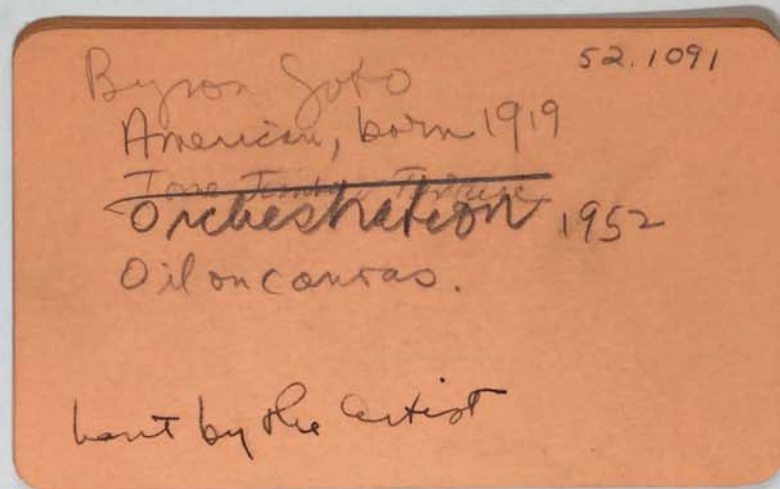 52.1091
Byron Goto
American, born 1919
Orchestration 1952
Oil on canvas.
Lent by the artist